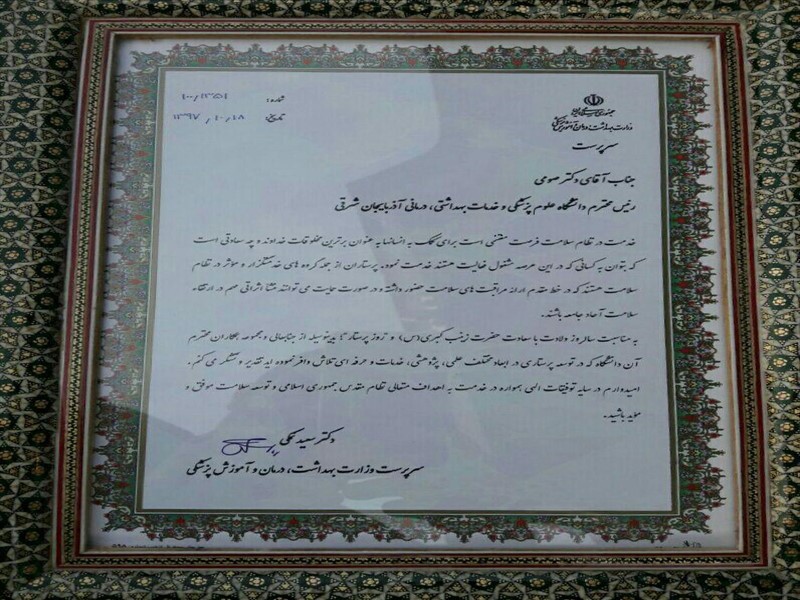 جمهوری اسلامی ایران
وزارت بهداشت، درمان و آموزش پزشکی
سرپرست
شماره: ۱۰۰/۱۳۵۱
تاریخ: ۱۳۹۷/۱۰/۱۸
جناب آقای دکتر صومی
رئیس محترم دانشگاه علوم پزشکی و خدمات بهداشتی، درمانی آذربایجان شرقی
خدمت در نظام سلامت فرصت مغتنمی است برای کمک به انسانها به عنوان برترین مخلوقات خداوند و چه سعادتی است
که بتوان به کسانی که در این عرصه مشغول فعالیت هستند خدمت نمود. پرستاران از جمله گروه های خدمتگزار و مؤثر در نظام
سلامت هستند که در خط مقدم ارائه مراقبت های سلامت حضور داشته و در صورت حمایت می توانند منشا اثراتی مهم در ارتقاء
سلامت آحاد جامعه باشند.
به مناسبت سالروز ولادت با سعادت حضرت زینب کبری (س) و روز پرستار بدینوسیله از جنابعالی و مجموعه همکاران محترم
آن دانشگاه که در توسعه پرستاری در ابعاد مختلف علمی، پژوهشی، خدمات و حرفه ای تلاش وافر نموده اید تقدیر و تشکر می کنم.
امیدوارم در سایه توفیقات الهی همواره در خدمت به اهداف متعالی نظام مقدس جمهوری اسلامی و توسعه سلامت موفق و
مؤید باشید.
دکتر سعید نمکی
سرپرست وزارت بهداشت، درمان و آموزش پزشکی